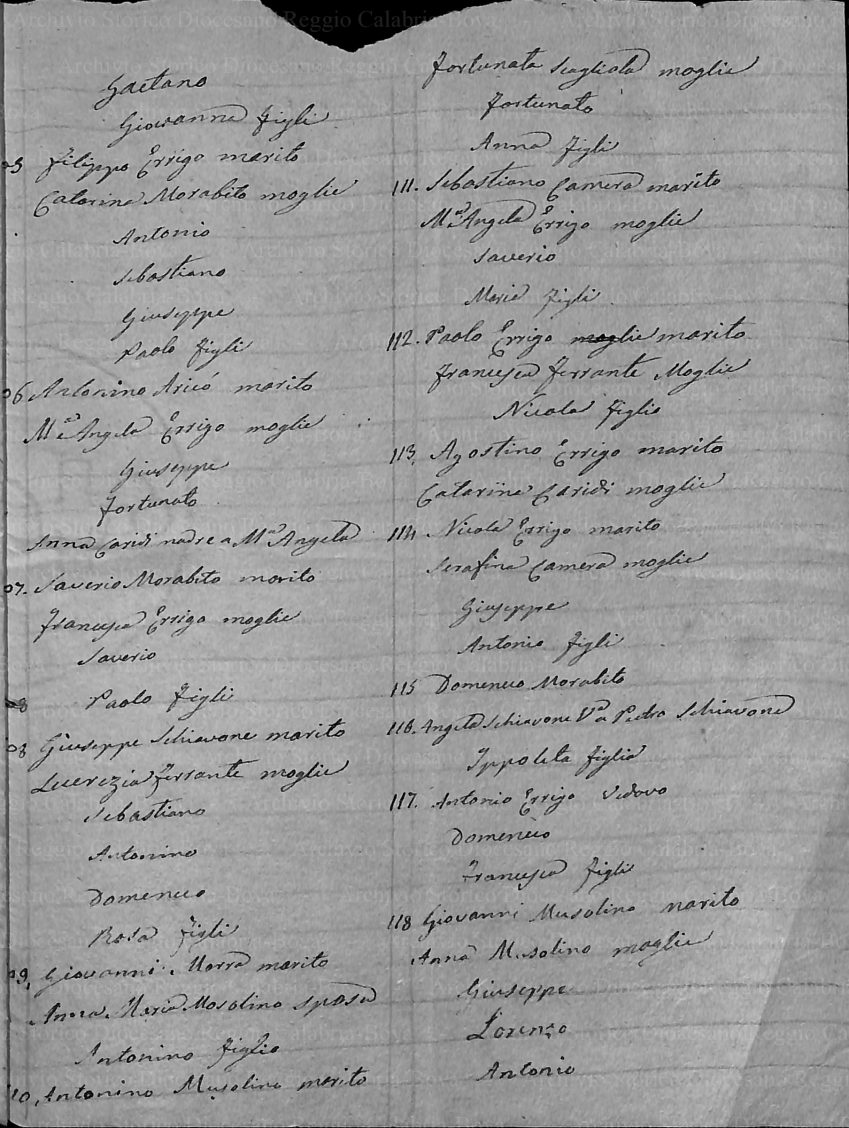 Gaetano
Giovanna figli
05 Filippo Errigo marito
Catarina Morabito moglie
Antonio
Sebastiano
Giuseppe
Paolo figli
06 Antonino Aricó marito
Mª Angela Errigo moglie
Giuseppe
Fortunato
Anna Caridi madre a Mª Angela
07. Saverio Morabito marito
Francesca Errigo moglie
Saverio
Paolo figli
08 Giuseppe Schiavone marito
Lucrezia Ferrante moglie
Sebastiano
Antonino
Domenico
Rosa figli
09. Giovanni Morra marito
Anna Maria Mosolino sposa
Antonino figlio
10. Antonino Musolino marito
Fortunata Scagliola moglie
Fortunato
Anna figli
111. Sebastiano Camera marito
Mª Angela Errigo moglie
Saverio
Maria figli
112. Paolo Errigo moglie marito
Francesca Ferrante Moglie
Nicola figlio
113. Agostino Errigo marito
Catarina Caridi moglie
114 Nicola Errigo marito
Serafina Camera moglie
Giuseppe
Antonio figli
115 Domenico Morabito
116. Angela Schiavone Vª Pietro Schiavone
Ippolita figlia
117. Antonio Errigo Vedovo
Domenico
Francesca figli
118 Giovanni Musolino marito
Anna Musolino moglie
Giuseppe
Lorenzo
Antonio